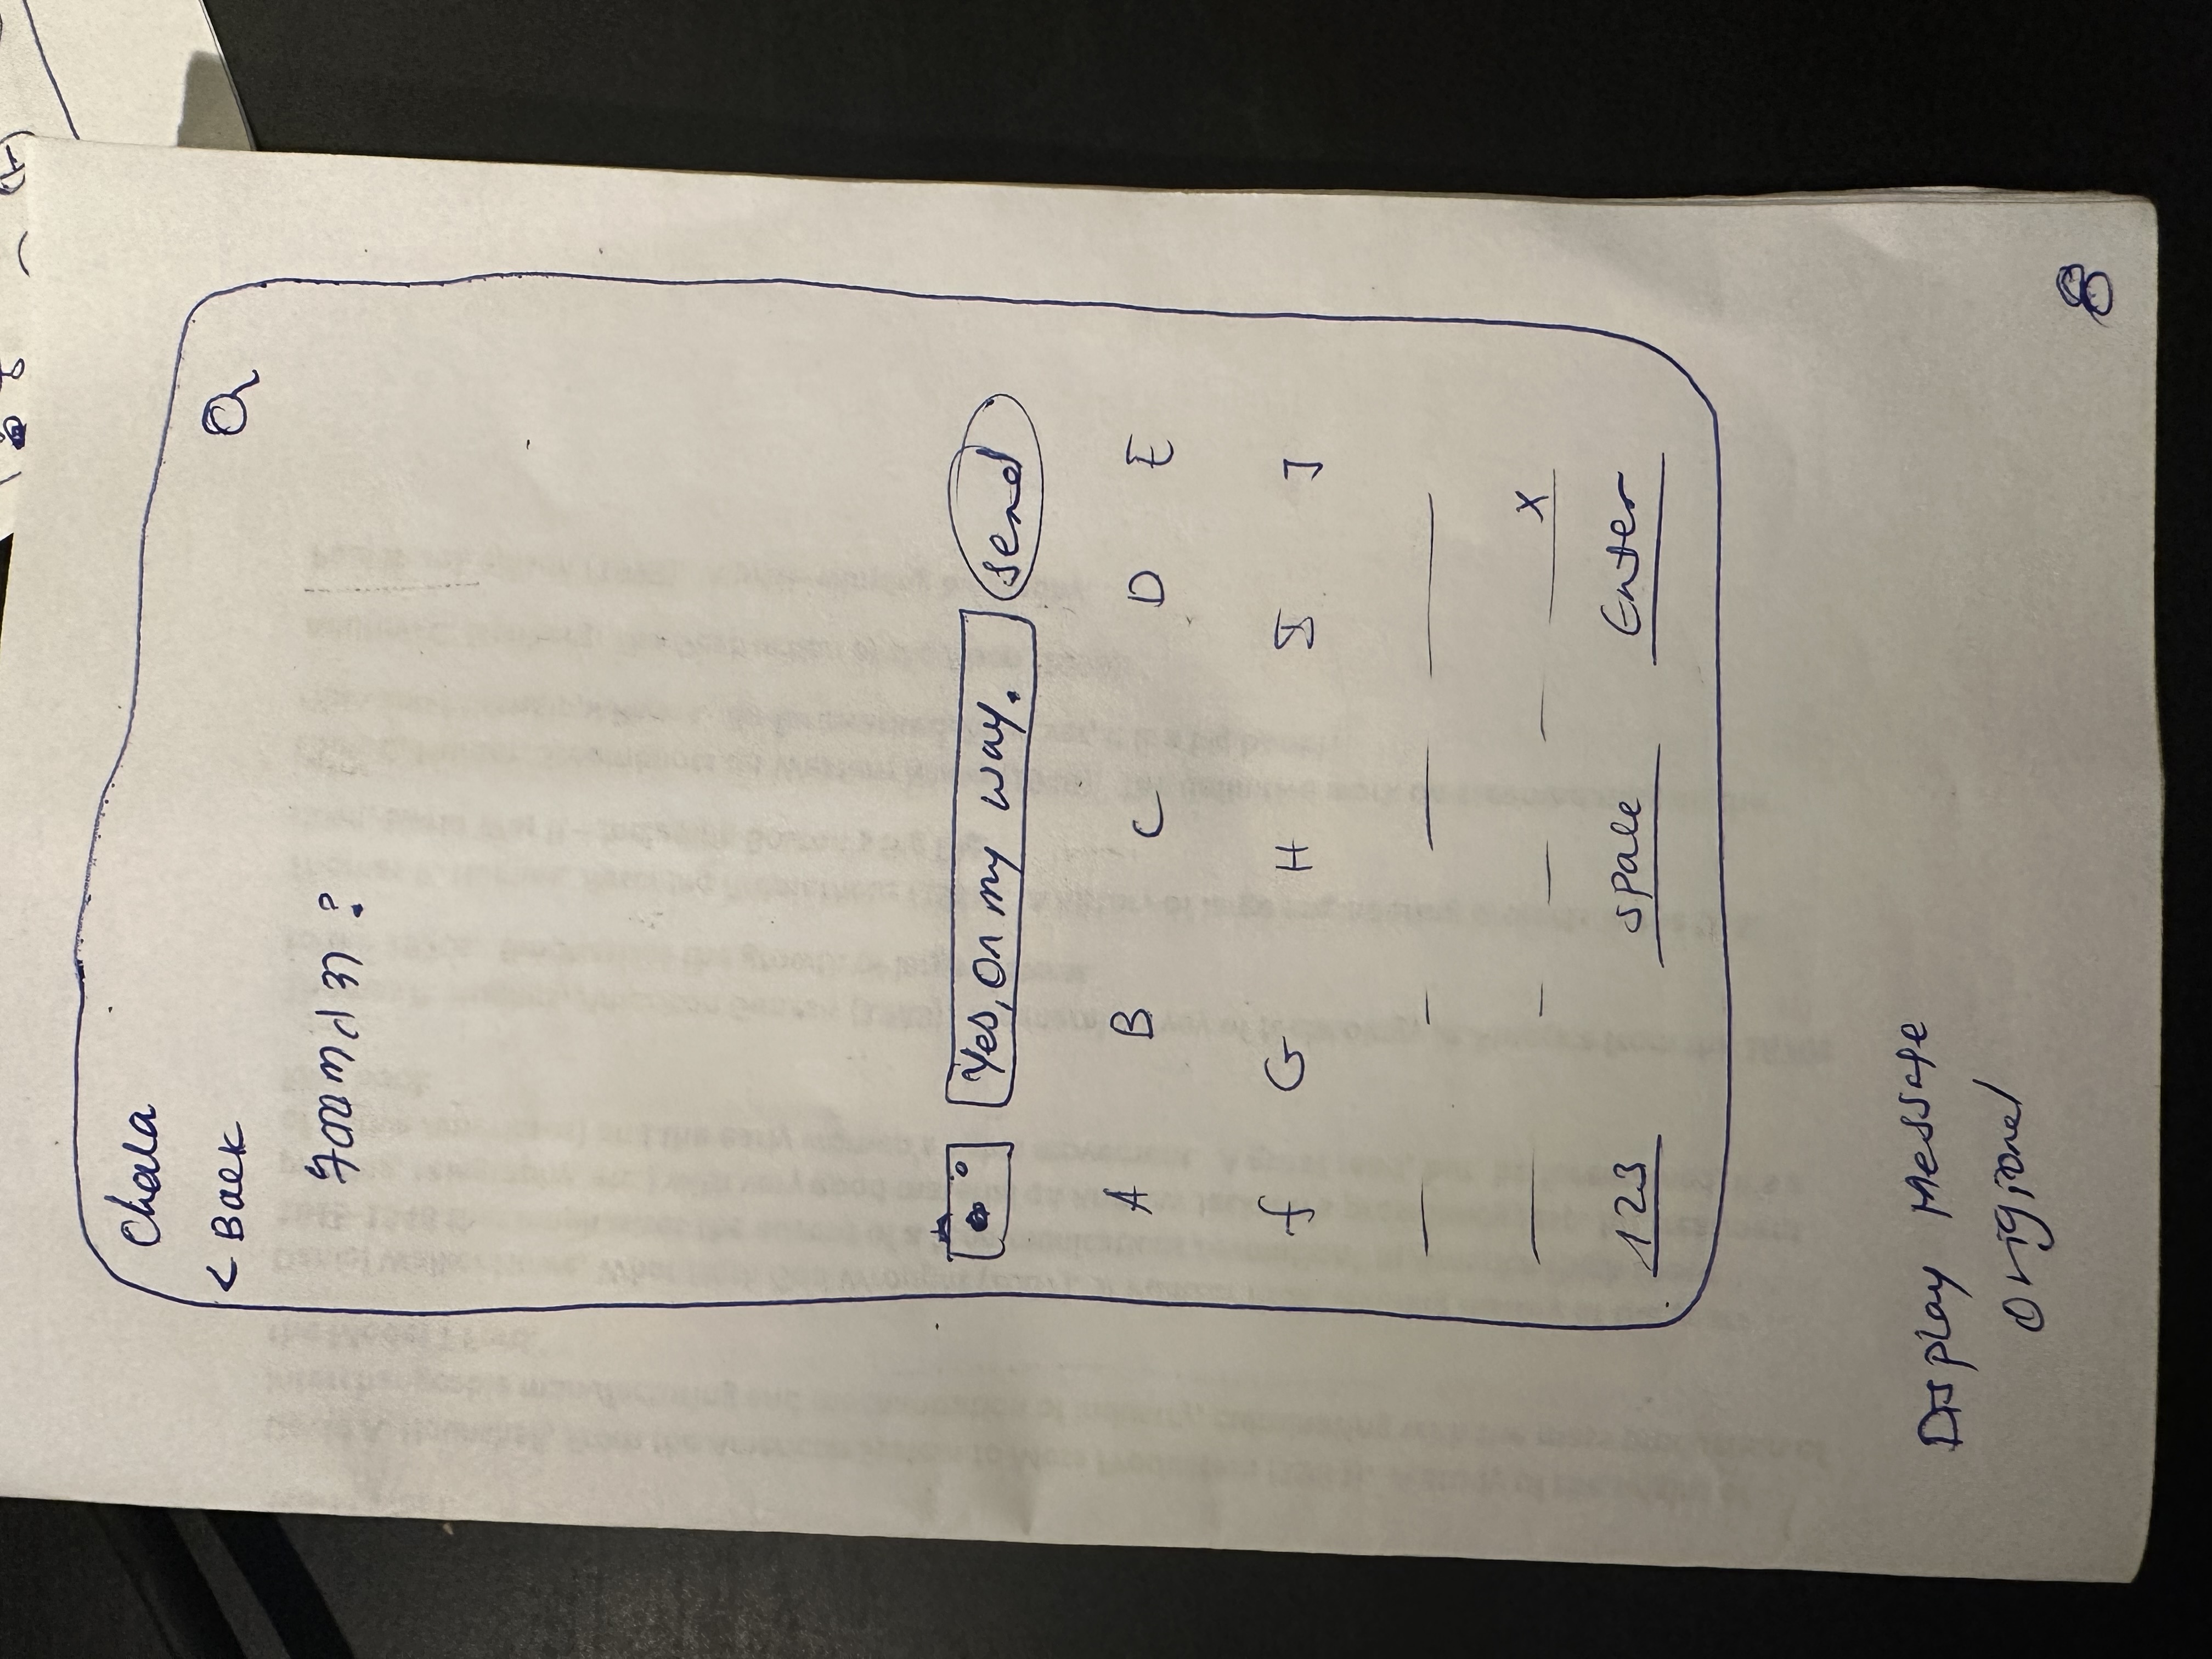 Chala
< Back
እየመጣህ ነው ?
Yes, on my way.
send
A B C D E
f G H I J
X
123 space Enter
Display Message
Origional
8